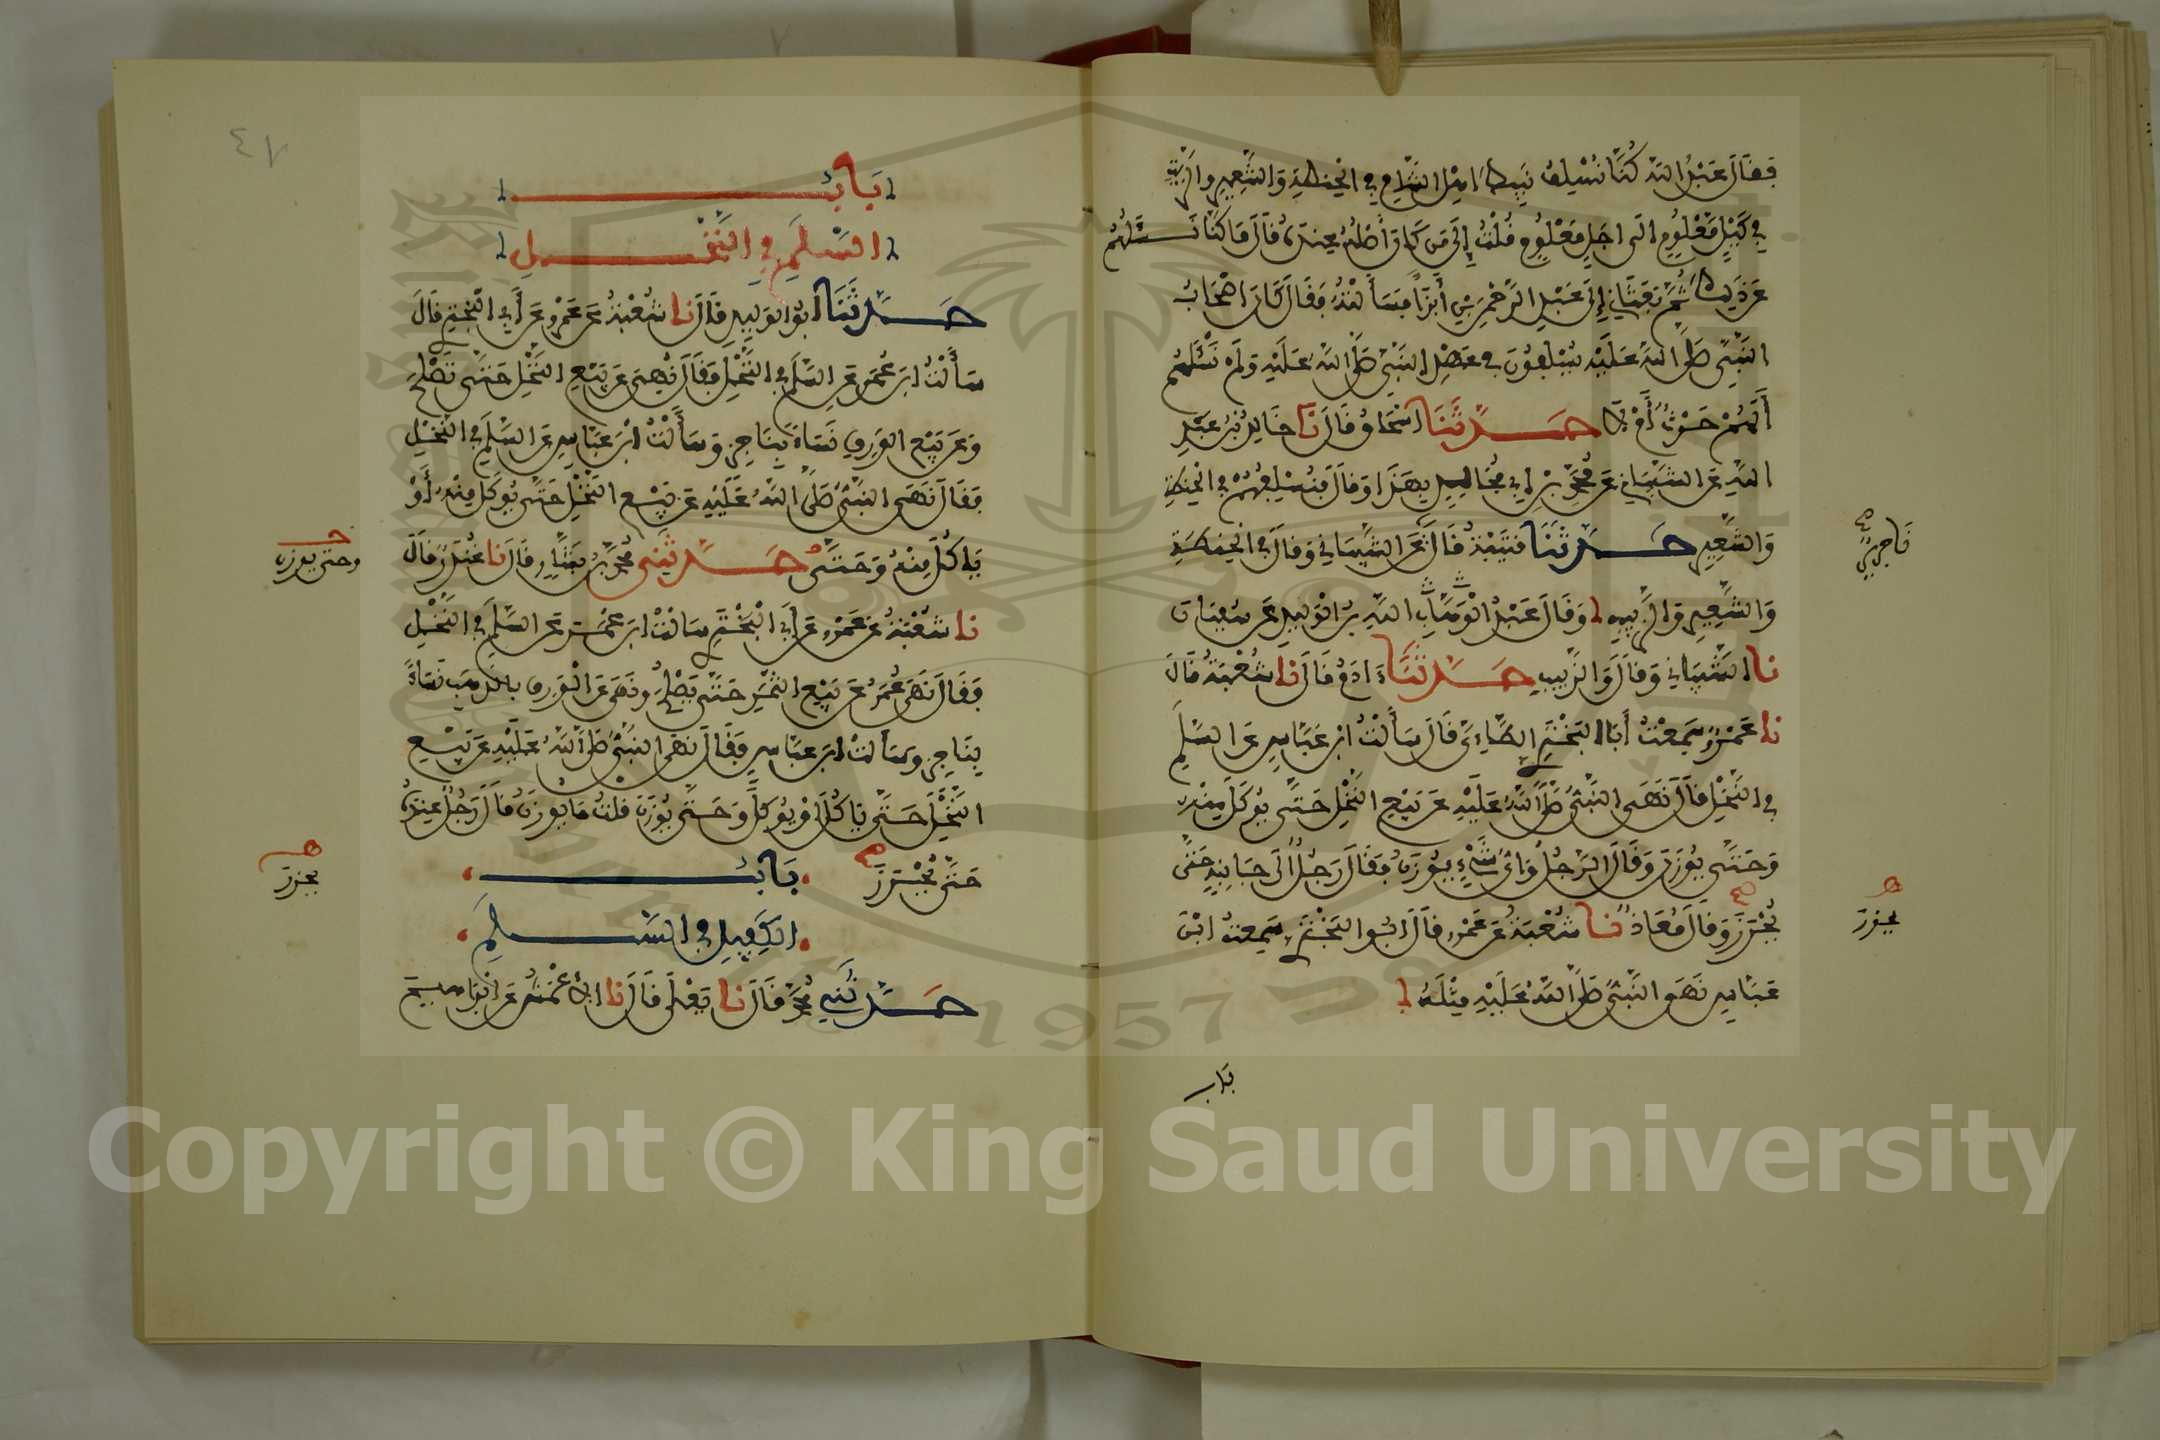 فقال عبد الله كنا نسلف نبيط اهل الشام في الحنطة والشعير والزيت
في كيل معلوم الى اجل معلوم قلت إلى من كان أصله عنده قال ما كنا نسئلهم
عن ذلك ثم بعثاني إلى عبد الرحمن بن أبزا فسألته فقال كان اصحاب
النبي صلى الله عليه يسلفون في عهد النبي صلى الله عليه ولم نسئلهم
ألهم حرث أم لا حدثنا اسحاق قال نا خالد بن عبد
الله عن الشيباني عن محمد بن ابي مجالد بهذا وقال فنسلفهم في الحنطة
والشعير حدثنا قتيبة قال نا جرير عن الشيباني وقال في الحنطة
والشعير والزبيب وقال عبد الله بن الوليد عن سفيان
نا الشيباني وقال والزيت حدثنا ءادم قال نا شعبة قال
نا عمرو سمعت أبا البختري الطاءي قال سألت ابن عباس عن السلم
في النخل قال نهى النبي صلى الله عليه عن بيع النخل حتى يوكل منه
وحتى يوزن وقال الرجل واي شيء يوزن فقال رجل الى جانبه حتى
يحرز وقال معاذ نا شعبة عن عمرو قال ابو البختري سمعت ابن
عباس نهى النبي صلى الله عليه مثله
باب
يحزر
٤٧
باب
السلم في النخل
حدثنا ابو الوليد قال نا شعبة عن عمرو عن أبي البختري قال
سألت ابن عمر عن السلم في النخل فقال نهي عن بيع النخل حتى تصلح
وعن بيع الورق نساء بناجز وسألت ابن عباس عن السلم في النخل
فقال نهى النبي صلى الله عليه عن بيع النخل حتى يوكل منه أو
ياكل منه وحتى حدثني محمد بن بشار قال نا غندر قال
نا شعبة عن عمرو عن أبي البختري سالت ابن عمر عن السلم في النخل
فقال نهى عمر عن بيع الثمر حتى يصلح ونهى عن الورق بالذهب نساء
بناجز وسالت ابن عباس فقال نهى النبي صلى الله عليه عن بيع
النخل حتى ياكل أو يوكل وحتى يوزن قلت ما يوزن قال رجل عنده
حتى يحرز باب
الكفيل في السلم
حدثني محمد قال نا يعلى قال نا الأعمش عن ابراهيم
وحتى يوزن
يحزر